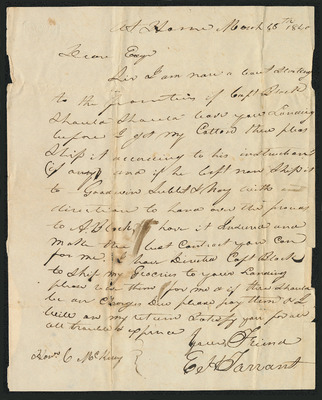 At Home March 28th 1840
Dear Enge
Sir I am now about starting
to the frontiers of Capt Black
Should Should leave your Landing
before I get my Cotton then pleas
Ship it according to his instructions
if any and if he left non Ship it
to Goodwin & Hoy with an
direction to hand over the proceeds
to A Black, have it Insured and
make the best Contract you can
for me. I have Directed Capt Black
to Ship my Grocries to youre Landing
please receive them for me & if there should
be any Charges Due please pay them & I
will on my return Satisfy you for all
all trouble & expence
Youre Friend
E H Tarrant
Howel C McKury